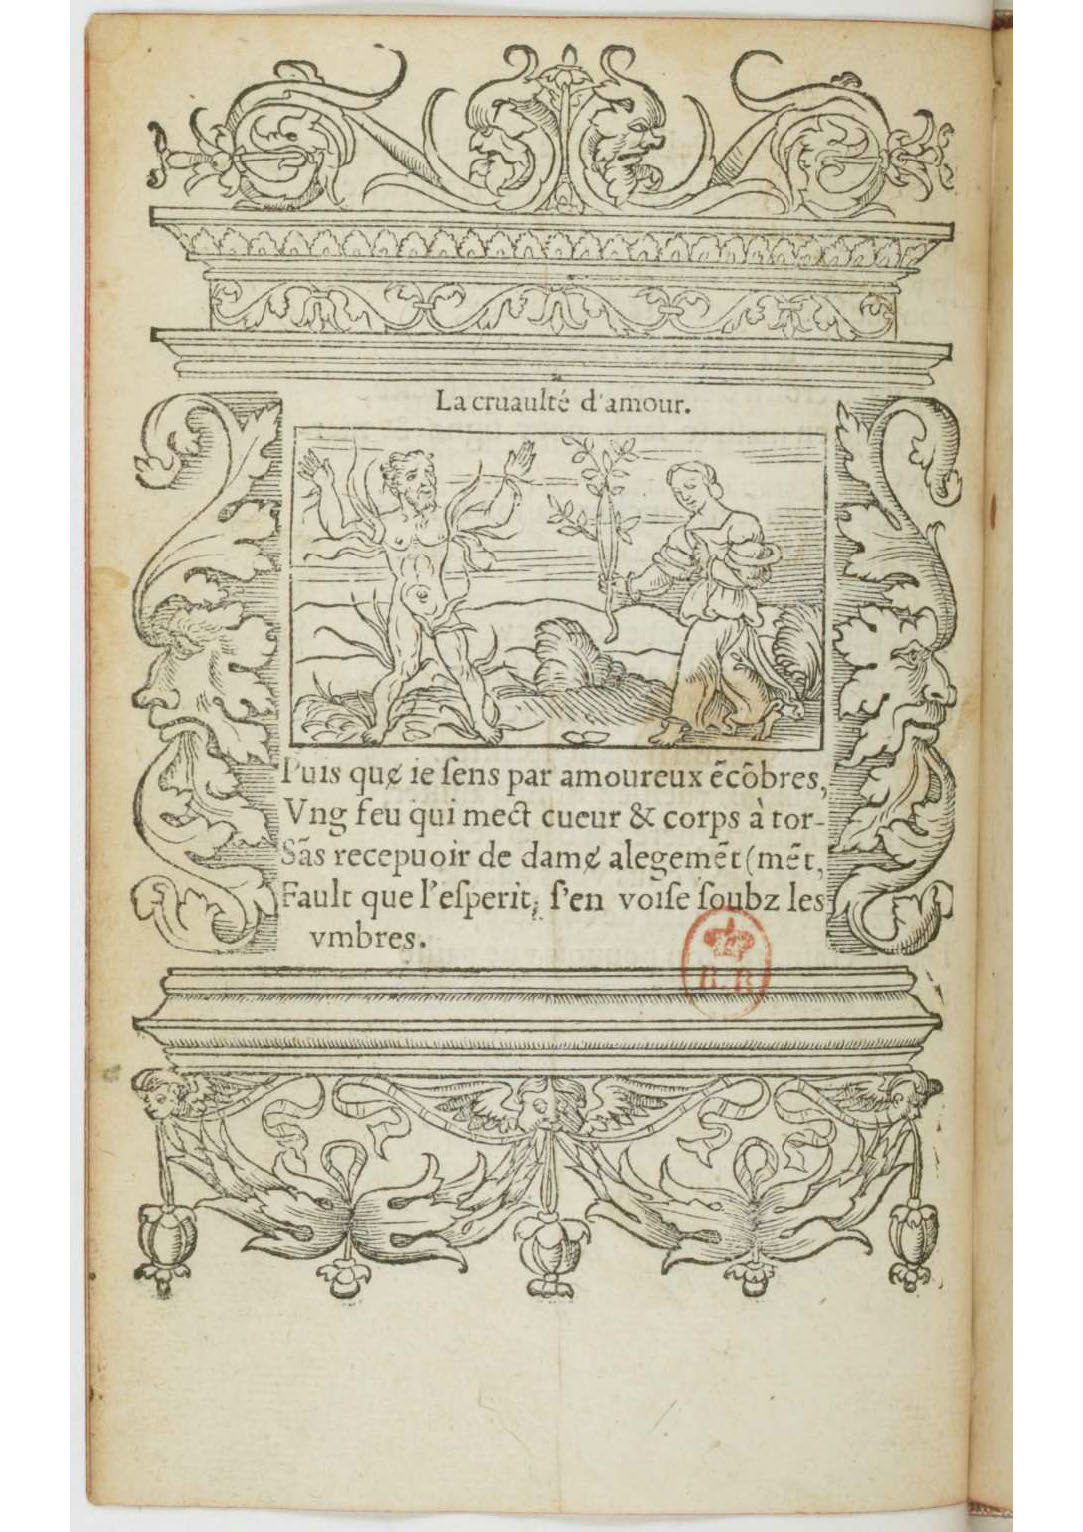 La cruaulté d'amour.
Puis que ie ſens par amoureux ẽcõbres,
Vng feu qui mect cueur & corps à tor-
Sãs recepuoir de dame alegemẽt (mẽt,
Fault que l'eſperit, ſ'en voiſe ſoubz les
vmbres.
B. R